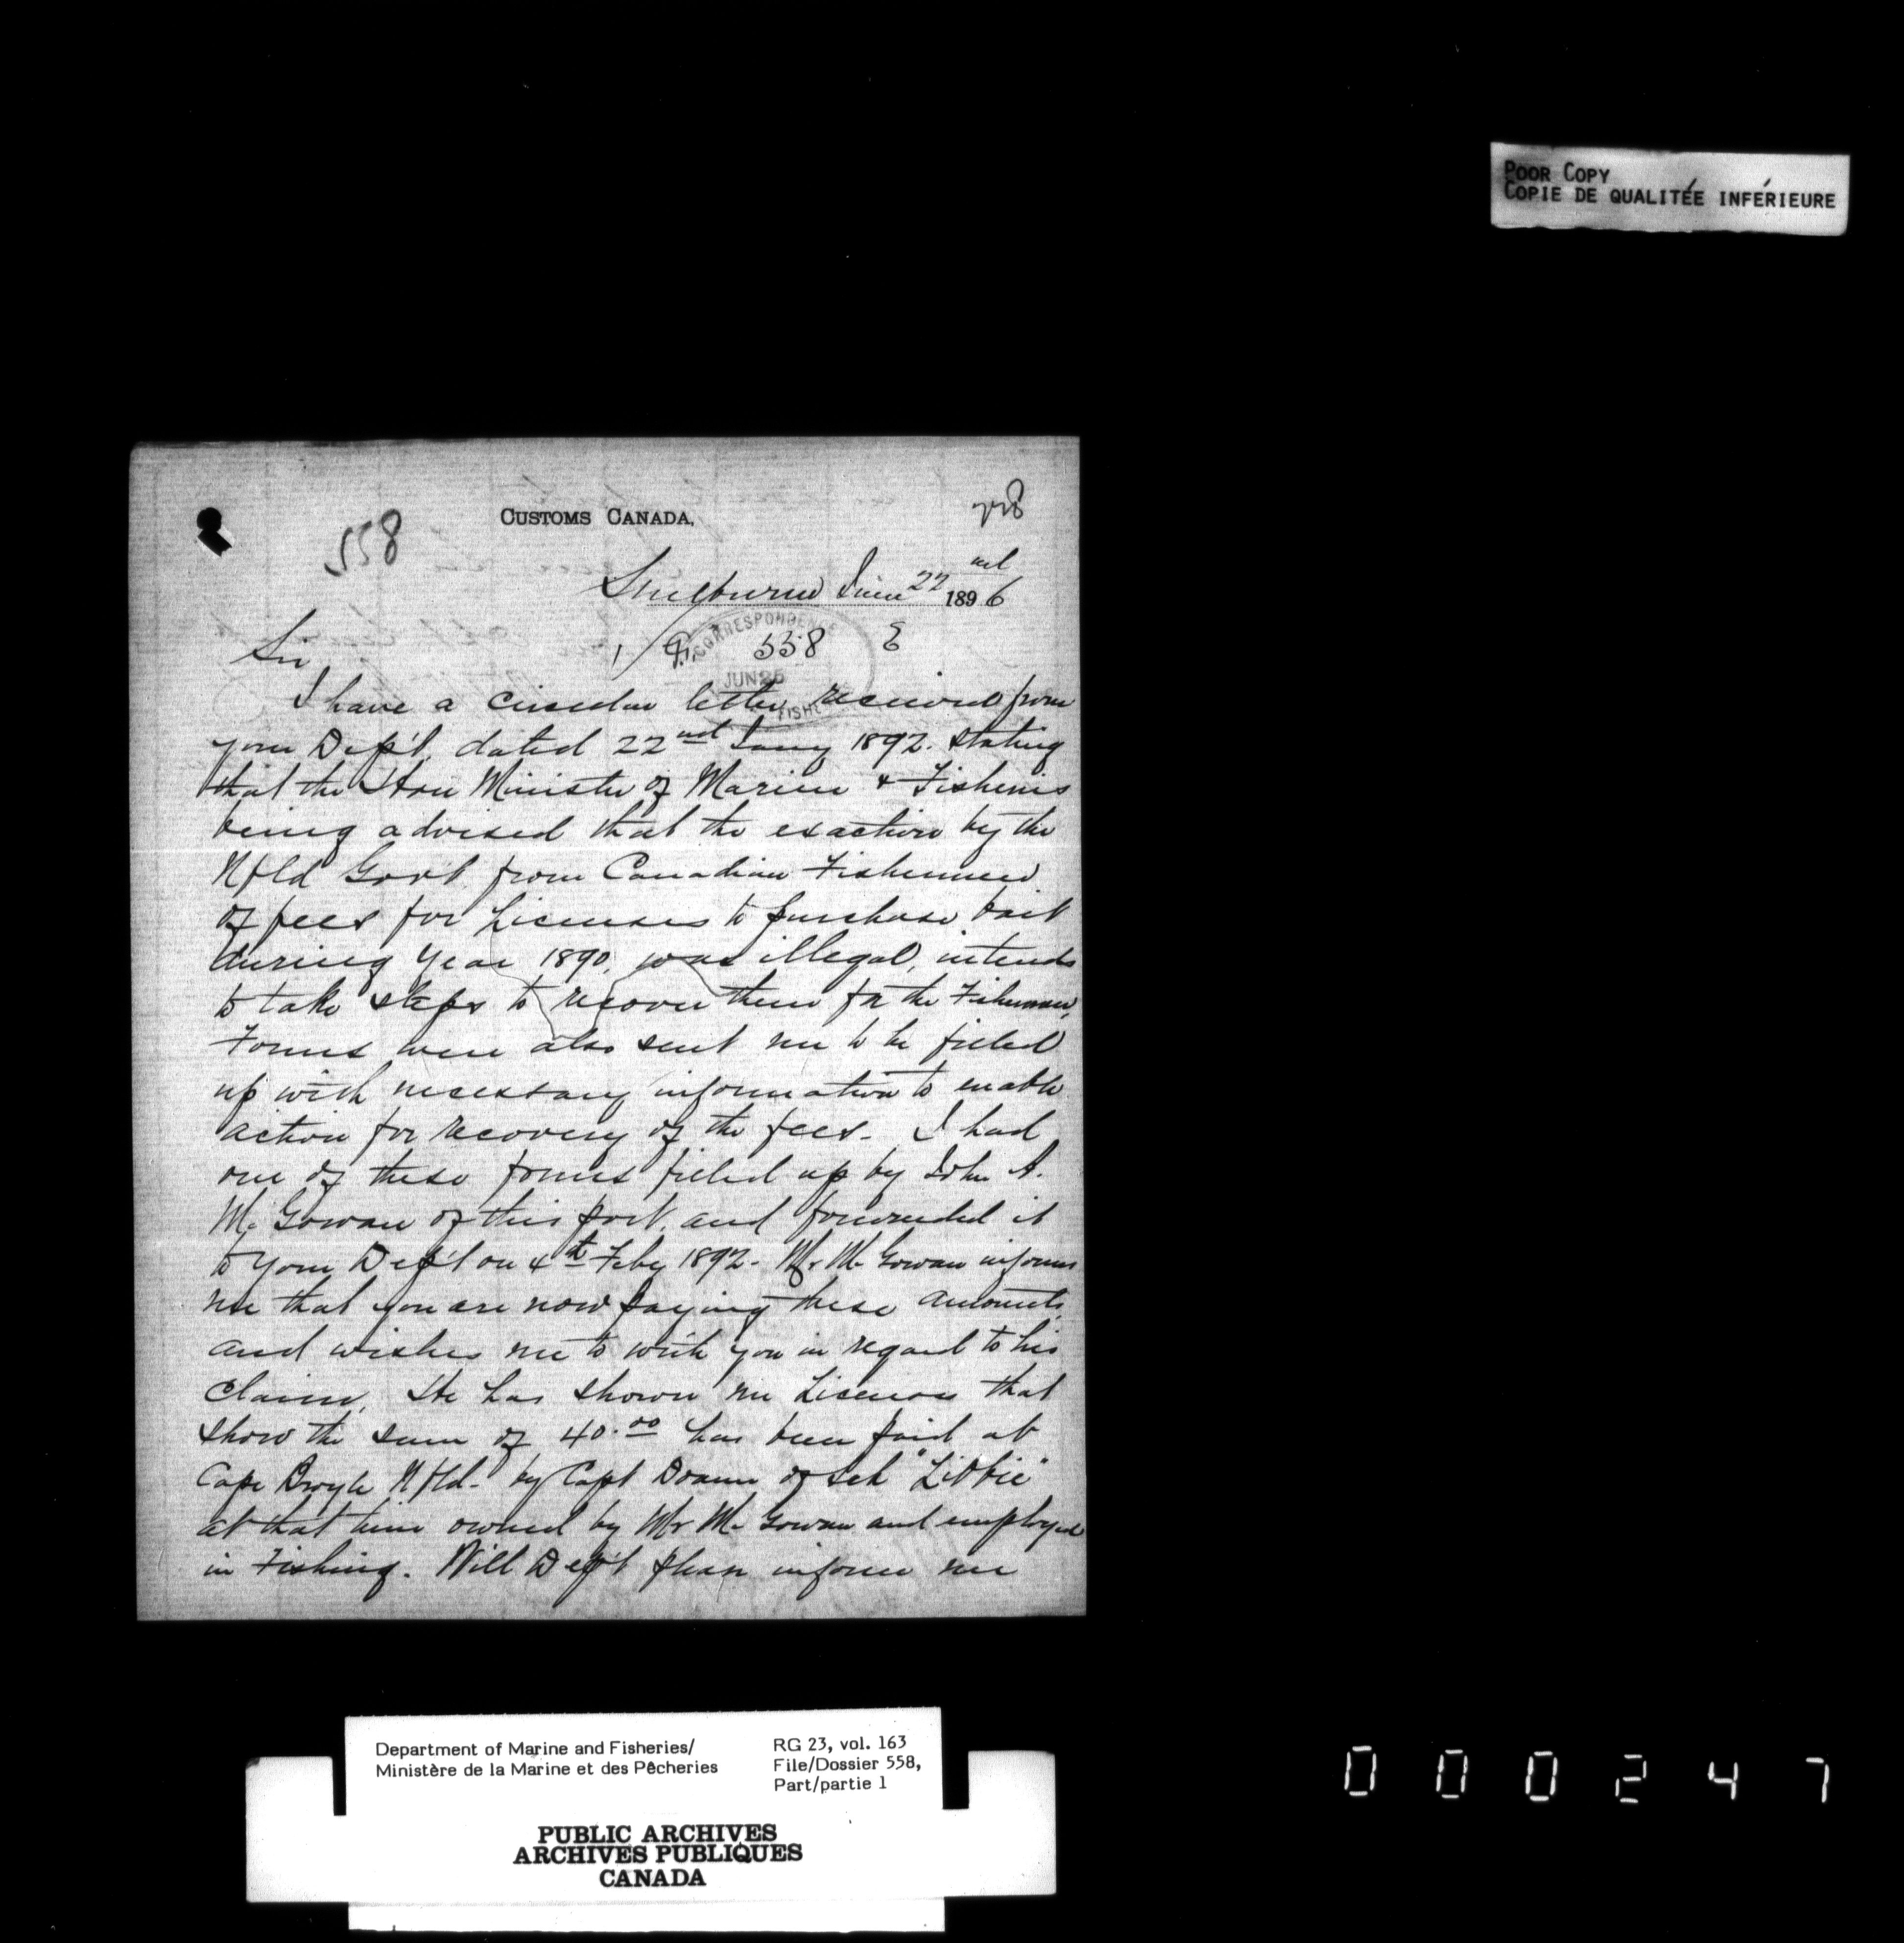 POOR COPY
COPIE DE QUALITÉE INFÉRIEURE
CUSTOMS CANADA.
558
Shelburne June 22nd 1896
Sir,
558 E
CORRESPONDENCE
JUN 25
FISH
I have a circular letter received from
your Dep't. dated 22nd Jany 1892. stating
that the Hon Minister of Marine & Fisheries
being advised that the exaction by the
Nfld Govt from Canadian Fishermen
of fees for Licenses to purchase bait
during Year 1890, was illegal, intends
to take steps to recover them for the Fishermen,
Forms were also sent me to be filled
up with necessary information to enable
action for recovery of the fees - I had
one of these forms filled up by John A.
McGowan of this port, and forwarded it
to your Dep't on 4th Feby 1892 - Mr. McGowan informs
me that you are now paying these amounts,
and wishes me to write you in regard to his
Claim, He has shown me Licenses that
show the sum of 40.00 has been paid at
Cape Nfld - by Capt Doane of Sch "Libbie"
at that time owned by Mr McGowan and employed
in Fishing. Will Dep't please inform me
Department of Marine and Fisheries/
Ministère de la Marine et des Pêcheries
RG 23, vol. 163
File/Dossier 558,
Part/partie 1
PUBLIC ARCHIVES
ARCHIVES PUBLIQUES
CANADA
000247